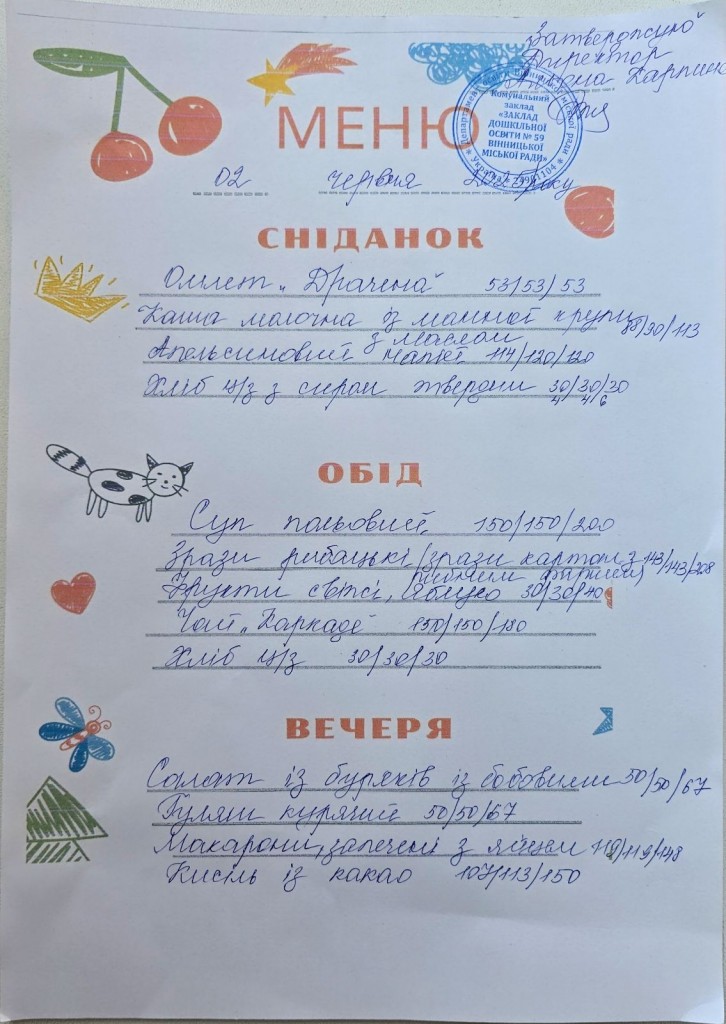 Затверджую
Директор
Карпин
МЕНЮ
Департамент освіти Вінницької міської ради
Комунальний
заклад
«ЗАКЛАД
ДОШКІЛЬНОЇ
ОСВІТИ № 59
ВІННИЦЬКОЇ
МІСЬКОЇ РАДИ»
02 червня року
СНІДАНОК
Омлет „Драчена" 53/53/53
Каша молочна із манної крупи 88/90/113
з маслом
Апельсиновий напій 114/120/120
Хліб ц/з з сиром твердим 30/30/30
4/4/6
ОБІД
Суп польовий 150/150/200
Зрази рибацькі (зрази картоп. з 143/143/208
рибним фаршем)
Фрукти свіжі, яблуко 30/30/40
Чай „Каркаде" 150/150/180
Хліб ц/з 30/30/30
ВЕЧЕРЯ
Салат із буряків із бобовими 50/50/67
Гуляш курячий 50/50/67
Макарони, запечені з яйцем 119/119/148
Кисіль із какао 107/113/150